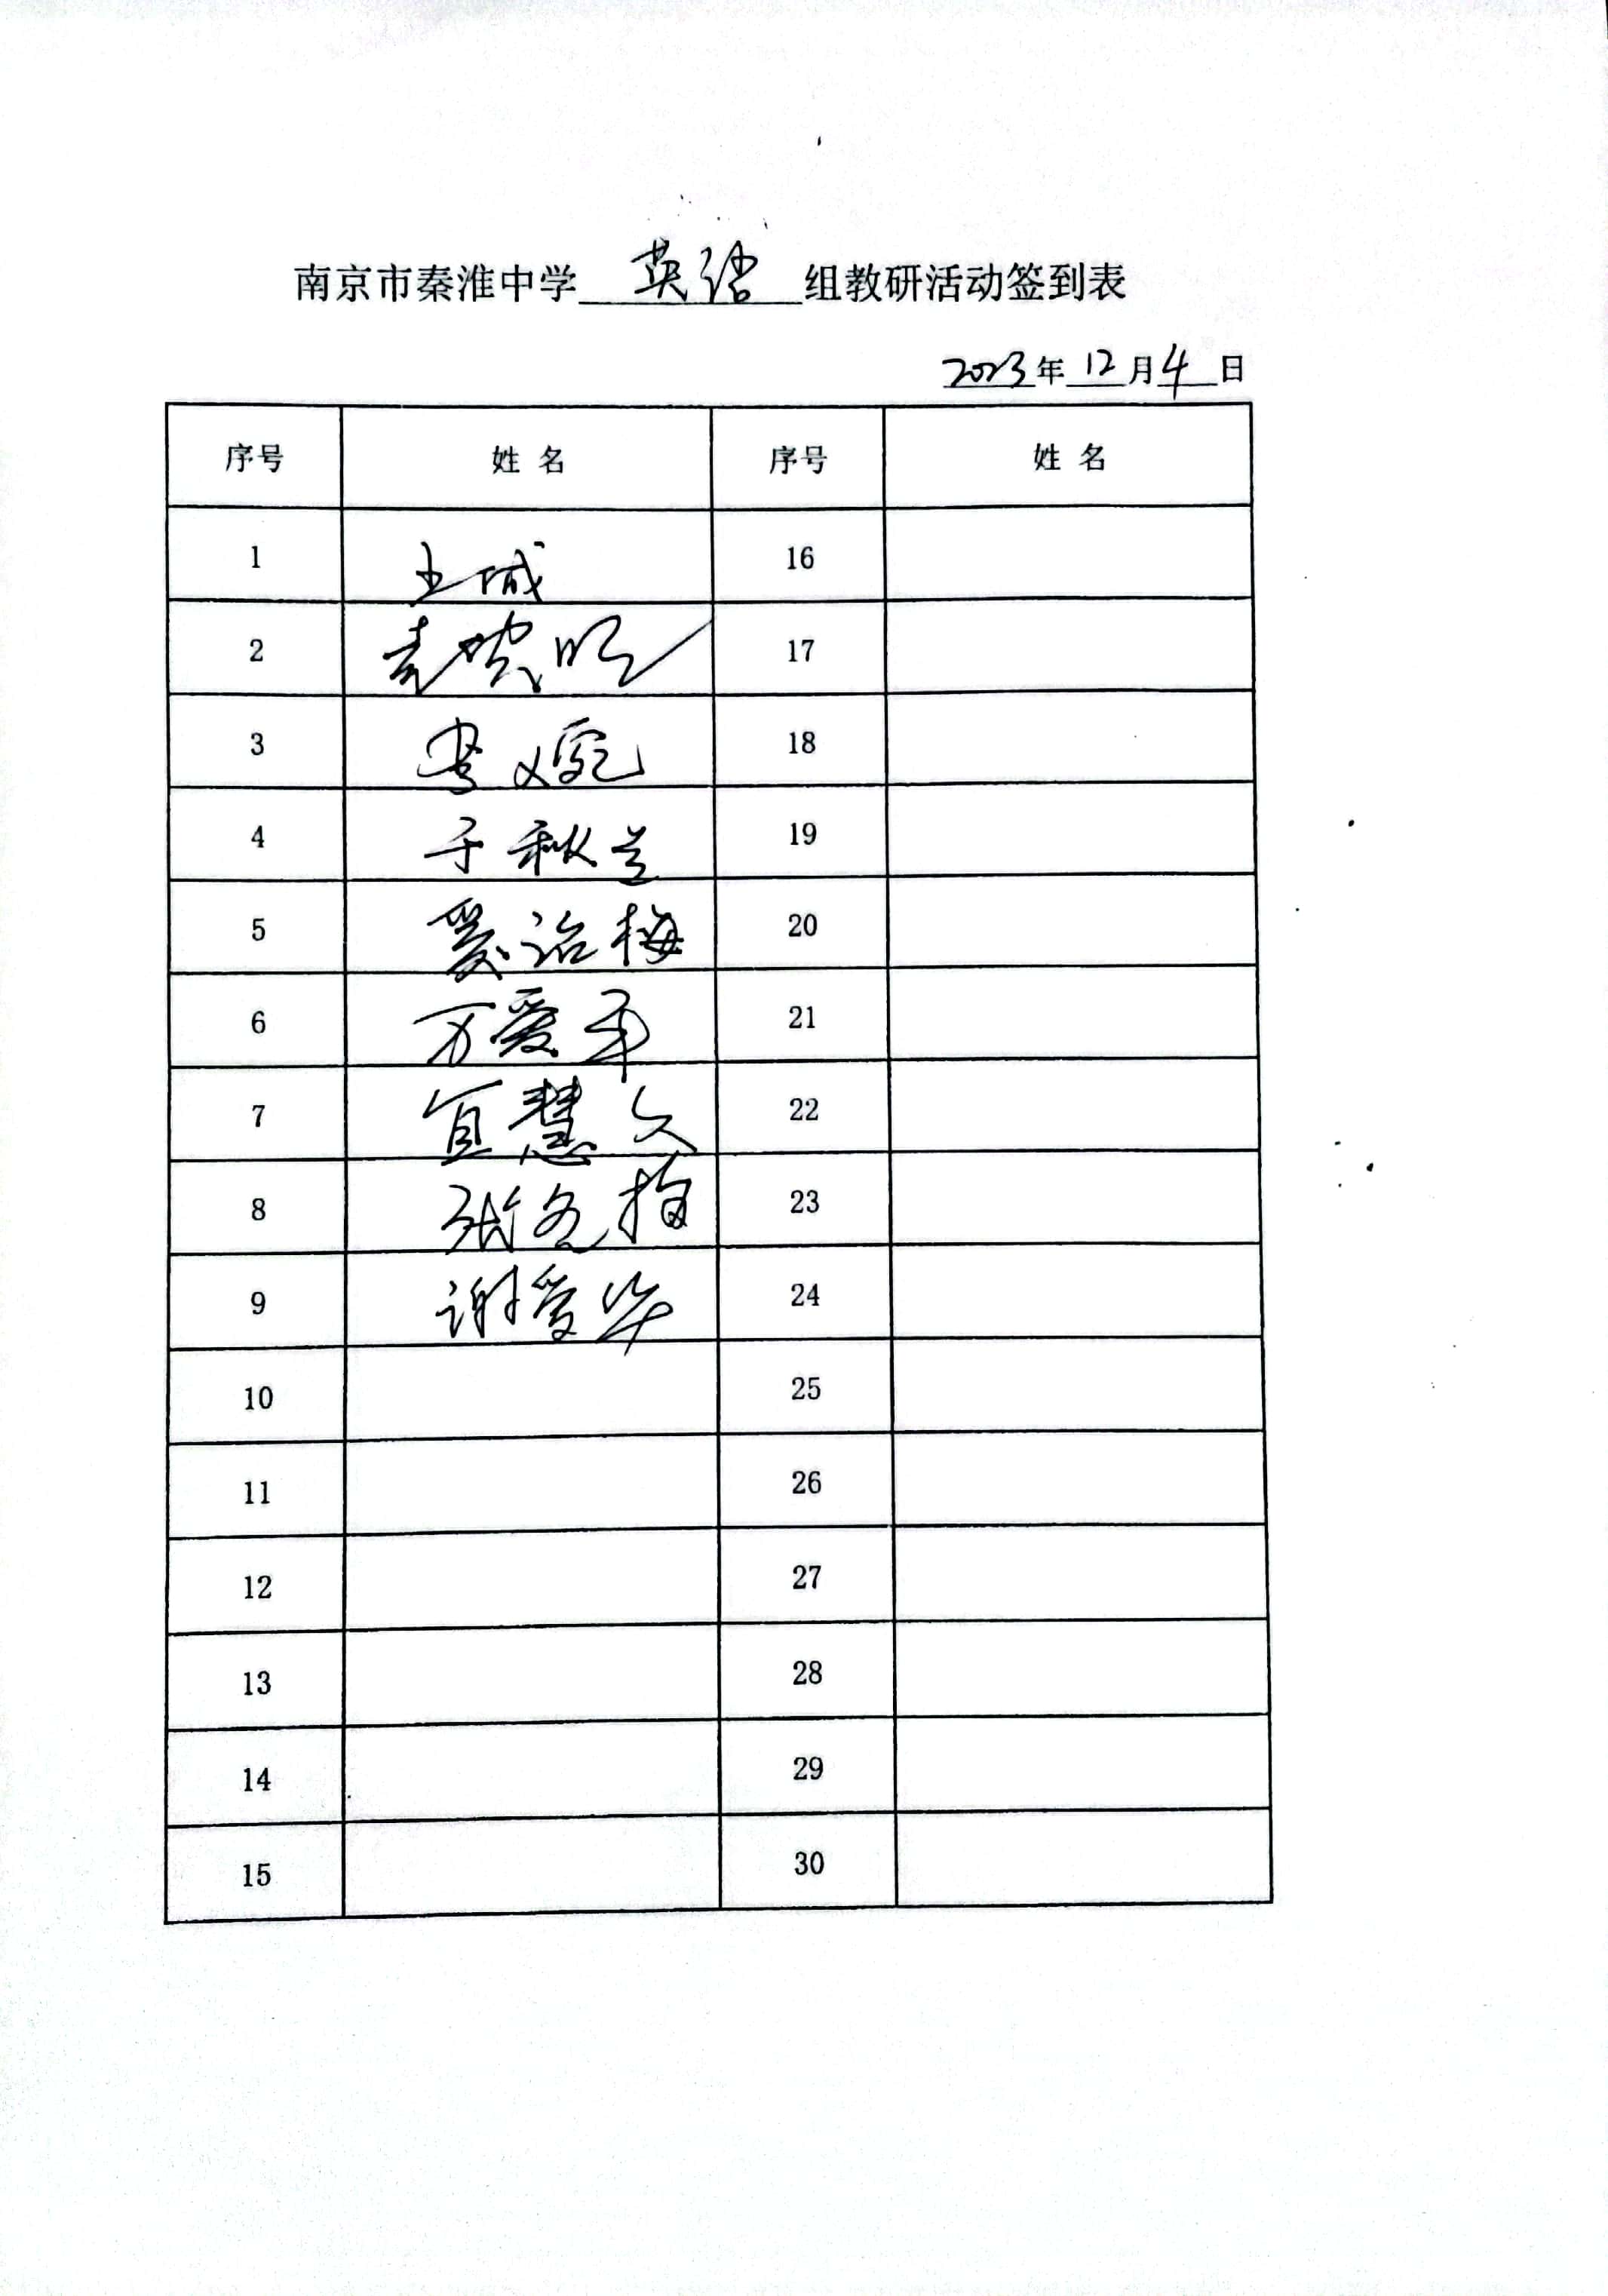 南京市秦淮中学 英语 组教研活动签到表
2023年 12 月 4 日
序号 姓 名 序号 姓 名
1 王城 16
2 17
3 18
4 于秋兰 19
5 梅 20
6 万爱平 21
7 宜慧文 22
8 张冬梅 23
9 谢爱华 24
10 25
11 26
12 27
13 28
14 29
15 30